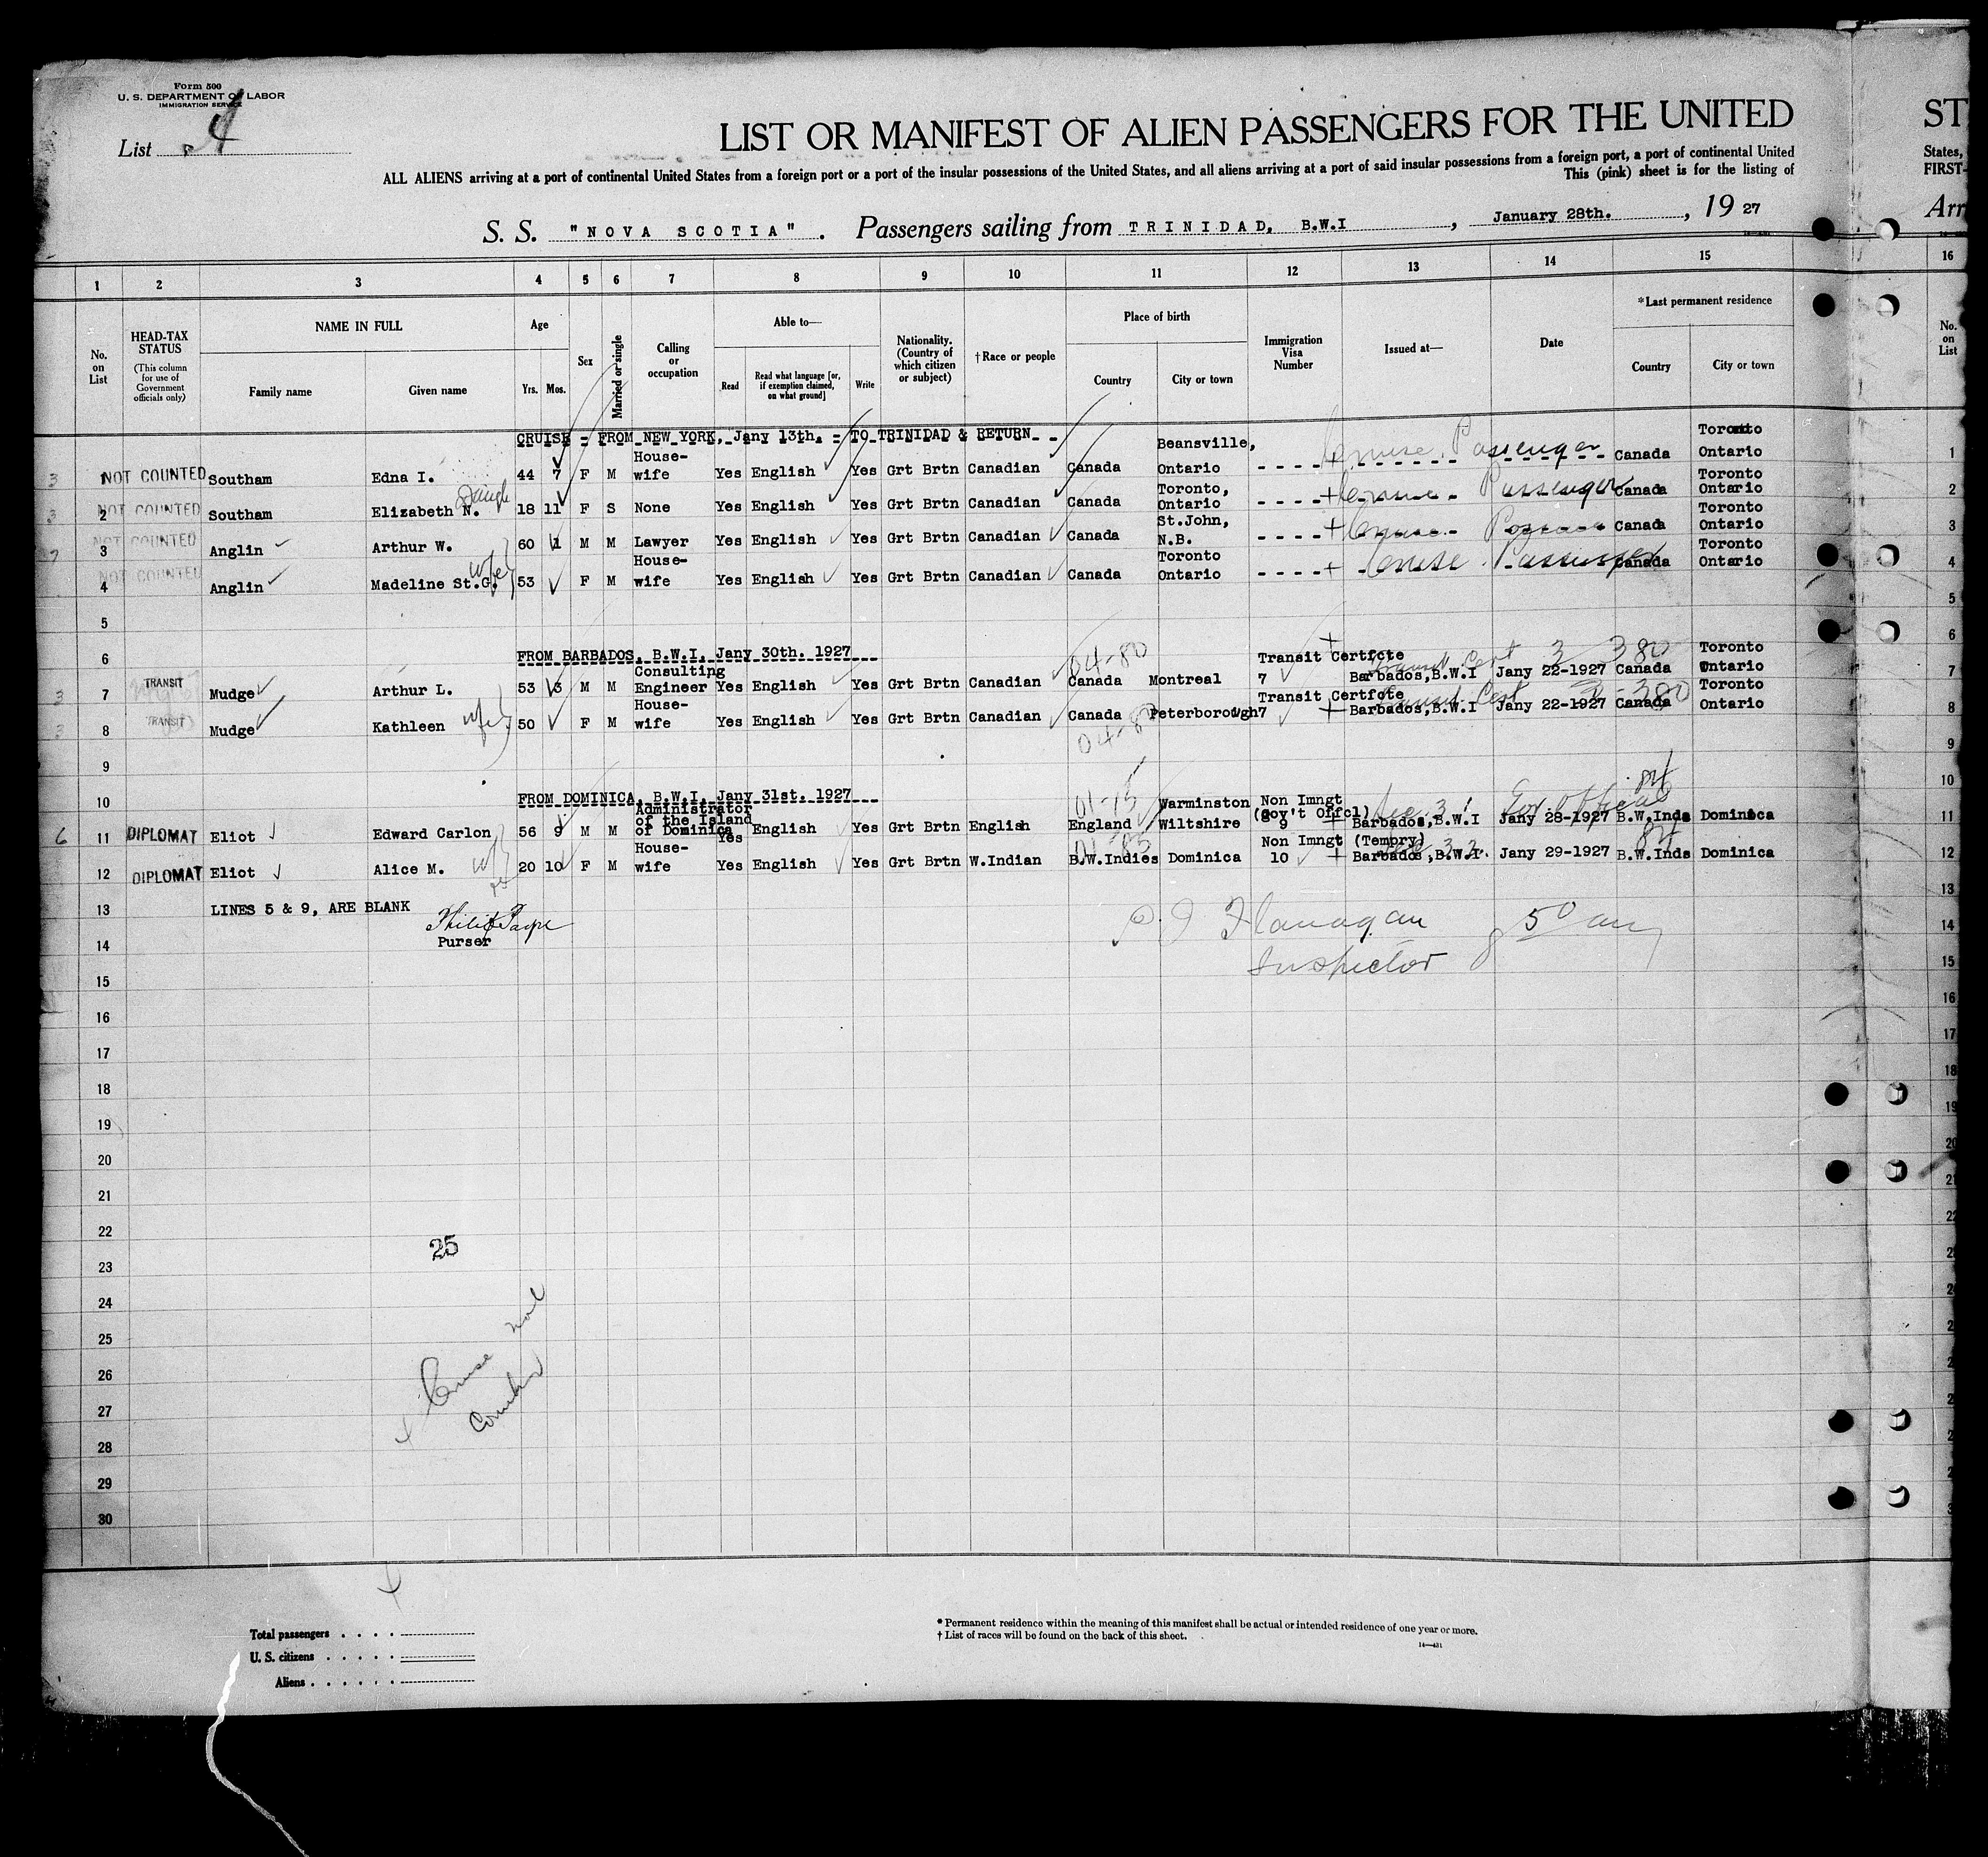 Form 500
U. S. DEPARTMENT OF LABOR
IMMIGRATION SERVICE
List 4
LIST OR MANIFEST OF ALIEN PASSENGERS FOR THE UNITED
ST
ALL ALIENS arriving at a port of continental United States from a foreign port or a port of the insular possessions of the United States, and all aliens arriving at a port of said insular possessions from a foreign port, a port of continental United
States,
This (pink) sheet is for the listing of
FIRST-
S. S. "NOVA SCOTIA". Passengers sailing from TRINIDAD, B.W.I , January 28th. , 19 27
Arr
1 2 3 4 5 6 7 8 9 10 11 12 13 14 15 16
No. on List
HEAD-TAX STATUS
(This column for use of Government officials only)
NAME IN FULL
Family name Given name
Age
Yrs. Mos.
Sex
Married or single
Calling or occupation
Able to—
Read
Read what language [or, if exemption claimed, on what ground]
Write
Nationality. (Country of which citizen or subject)
†Race or people
Place of birth
Country City or town
Immigration Visa Number
Issued at—
Date
*Last permanent residence
Country City or town
No. on List
CRUISE - FROM NEW YORK, Jany 13th. - TO TRINIDAD & RETURN
3 1 NOT COUNTED Southam Edna I. 44 7 F M House-wife Yes English Yes Grt Brtn Canadian Canada Beansville, Ontario Cruise Passenger Canada Toronto Ontario 1
3 2 NOT COUNTED Southam Elizabeth N. Daugh 18 11 F S None Yes English Yes Grt Brtn Canadian Canada Toronto, Ontario Cruise Passenger Canada Toronto Ontario 2
3 NOT COUNTED Anglin Arthur W. 60 1 M M Lawyer Yes English Yes Grt Brtn Canadian Canada St.John, N.B. Cruise Canada Toronto Ontario 3
4 NOT COUNTED Anglin Madeline St.G. wife 53 F M House-wife Yes English Yes Grt Brtn Canadian Canada Toronto Ontario Cruise Passenger Canada Toronto Ontario 4
5 5
6 FROM BARBADOS, B.W.I, Jany 30th. 1927 6
3 7 TRANSIT Mudge Arthur L. 53 3 M M Consulting Engineer Yes English Yes Grt Brtn Canadian 04-80 Canada Montreal Transit Certfcte 7 Transit Cert 3 380 Barbados,B.W.I Jany 22-1927 Canada Toronto Ontario 7
3 8 TRANSIT Mudge Kathleen wife 50 F M House-wife Yes English Yes Grt Brtn Canadian Canada Peterborough Transit Certfcte 7 Transit Cert 380 Barbados,B.W.I Jany 22-1927 Canada Toronto Ontario 8
9 9
10 FROM DOMINICA, B.W.I, Jany 31st. 1927 10
6 11 DIPLOMAT Eliot Edward Carlon 56 9 M M Administrator of the Island of Dominica Yes English Yes Grt Brtn English 01-15 England Warminston Wiltshire Non Imngt (Gov't Offcl) 9 Sec 3 Barbados,B.W.I Jany 28-1927 B.W.Inds Dominica 11
12 DIPLOMAT Eliot Alice M. 20 10 F M House-wife Yes English Yes Grt Brtn W.Indian 01-85 B.W.Indies Dominica Non Imngt (Tempry) 10 Barbados,B.W.I. Jany 29-1927 B.W.Inds Dominica 12
13 LINES 5 & 9, ARE BLANK 13
14 Purser Flanagan 14
15 Inspector 15
16 16
17 17
18 18
19 19
20 20
21 21
22 22
25
23
24
25
26 Cruise not
27 Counted
28
29
30
Total passengers
U. S. citizens
Aliens
* Permanent residence within the meaning of this manifest shall be actual or intended residence of one year or more.
† List of races will be found on the back of this sheet.
14—431